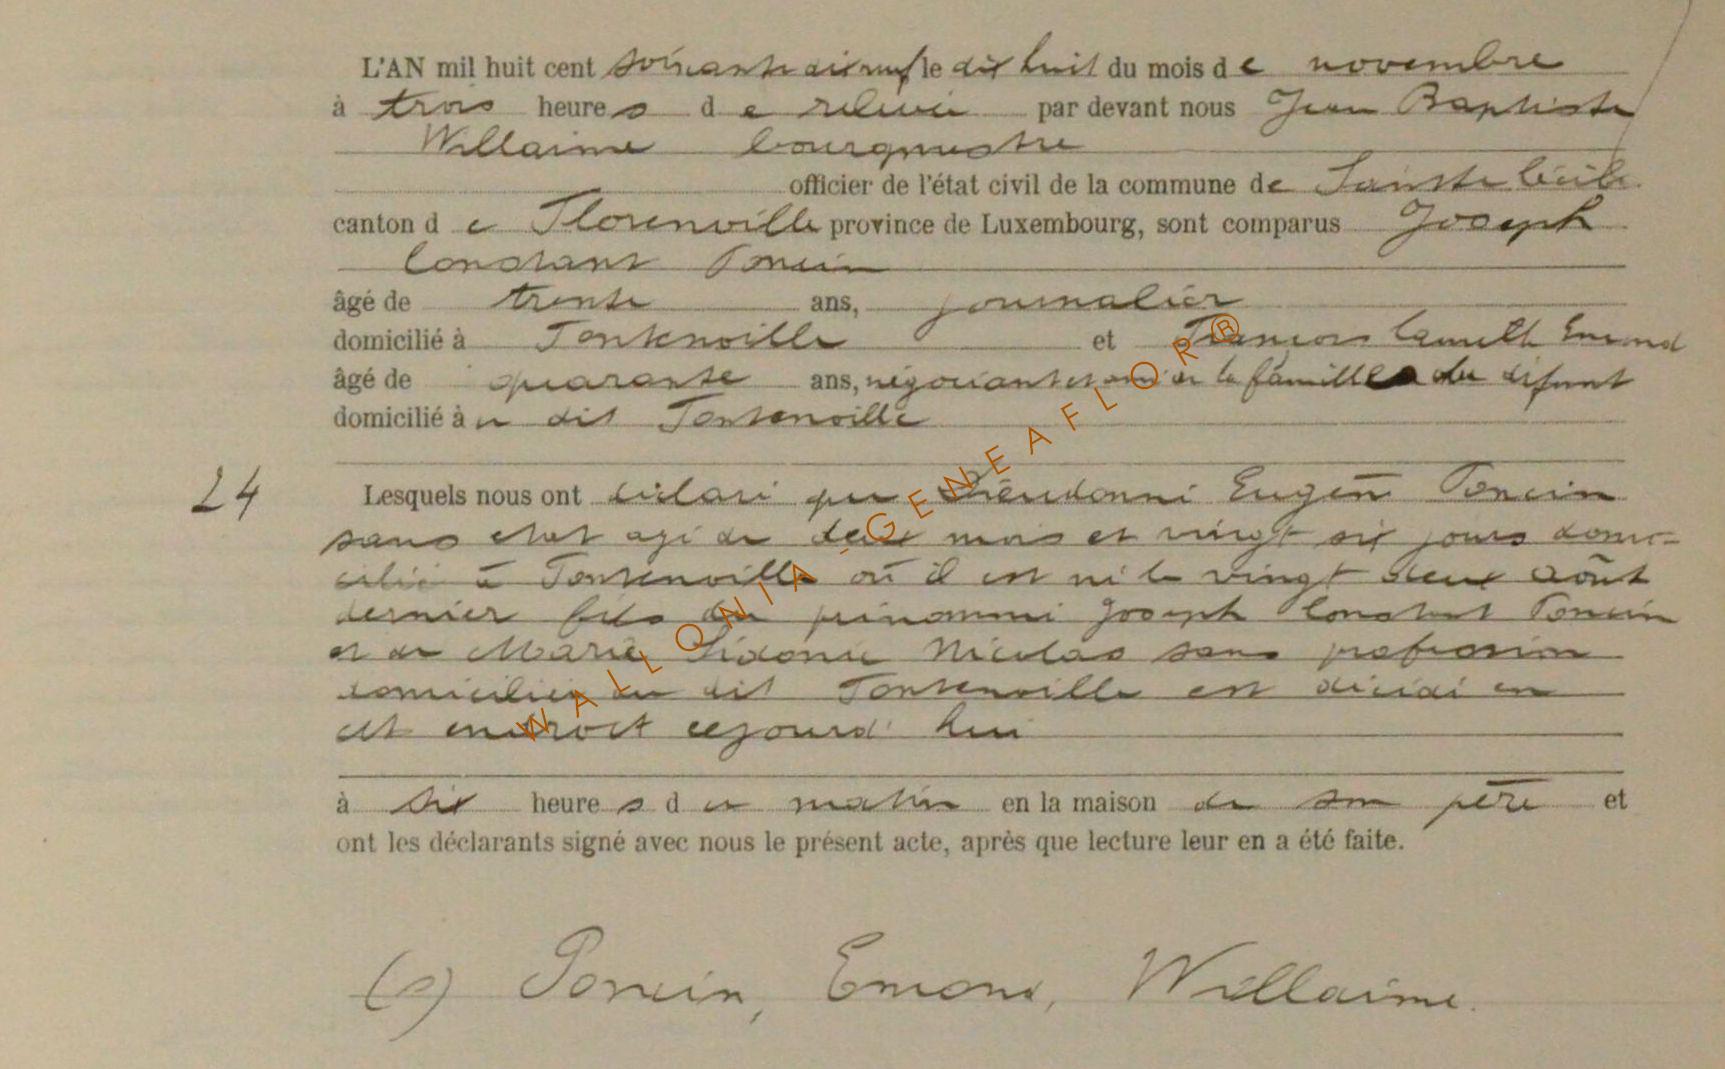 L'AN mil huit cent soixante dix neuf le dix huit du mois de novembre
à trois heures de relevée par devant nous Jean Baptiste
Willaime bourgmestre
officier de l'état civil de la commune de Sainte Cécile
canton de Florenville province de Luxembourg, sont comparus Joseph
Constant Poncin
âgé de trente ans, journalier
domicilié à Fontenoille et François Camille Emond
âgé de quarante ans, négociant et ami de la famille du défunt
domicilié au dit Fontenoille
24
Lesquels nous ont déclaré que Dieudonné Eugène Poncin
sans état agé de deux mois et vingt six jours domi-
cilié à Fontenoille où il est né le vingt deux Août
dernier fils du prénommé Joseph Constant Poncin
et de Marie Sidonie Nicolas sans profession
domiciliés au dit Fontenoille est décédé en
cet endroit cejourd'hui
à six heures du matin en la maison de son père et
ont les déclarants signé avec nous le présent acte, après que lecture leur en a été faite.
(s) Poncin, Emond, Willaime.
WALLONIA-GENEAFLOR®